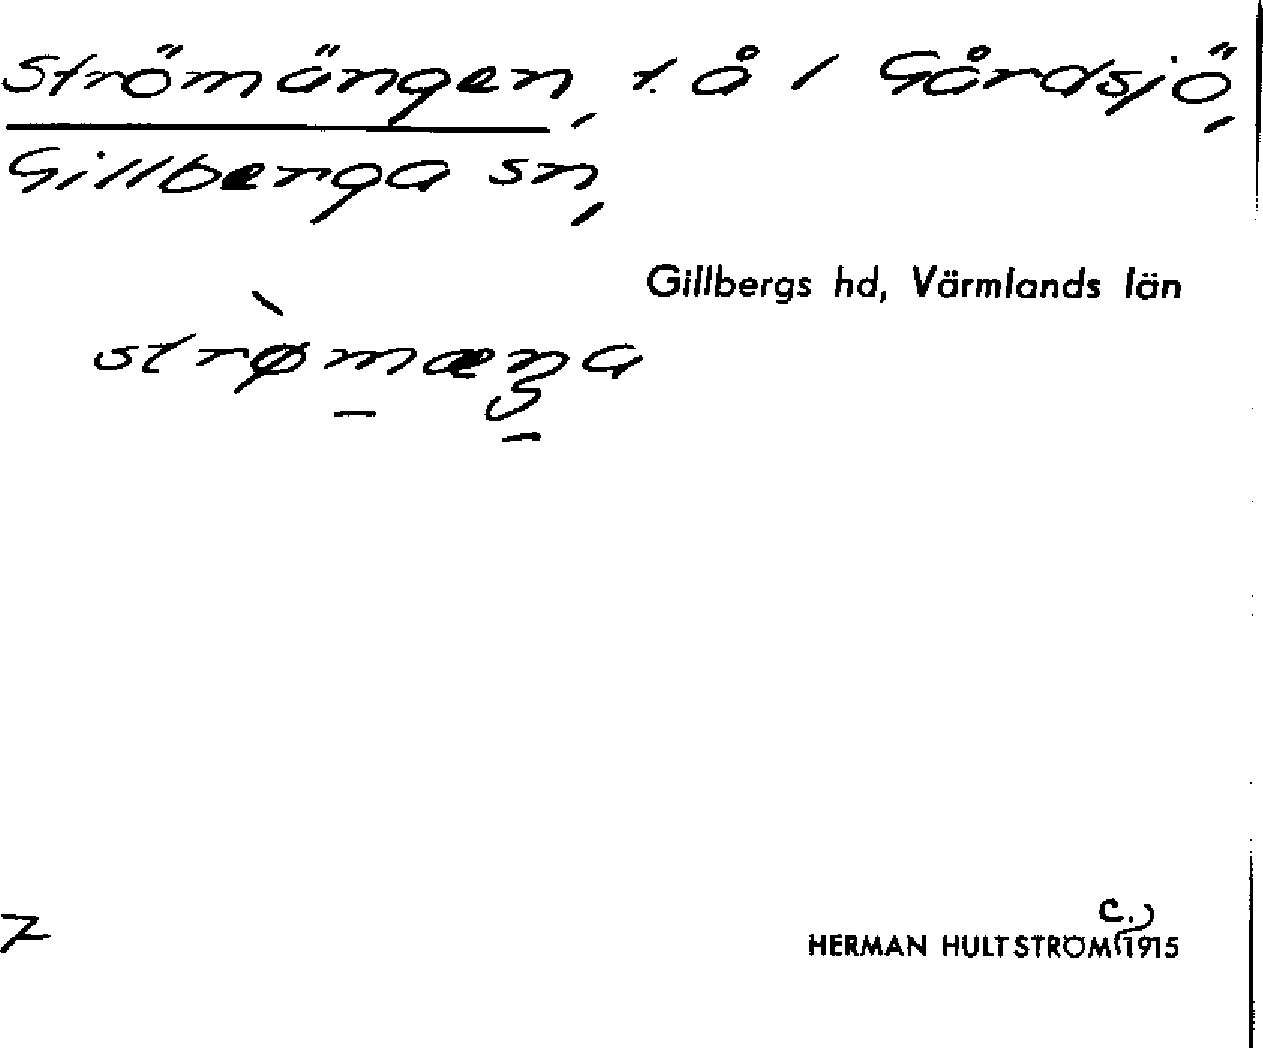 Strömängen, t. å i Gårdsjö,
Gillberga sn,
Gillbergs hd, Värmlands län
strø̀mæŋa
7
HERMAN HULTSTRÖM c. 1915